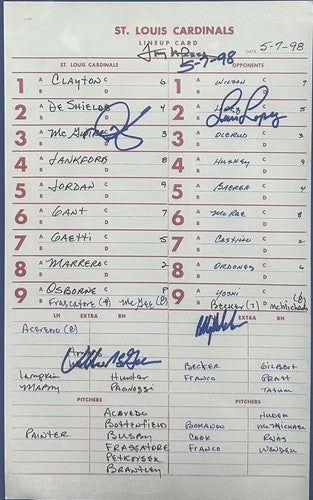 ST. LOUIS CARDINALS
LINEUP CARD
DATE 5-7-98
5-7-98
ST. LOUIS CARDINALS OPPONENTS
1 A CLAYTON C 6 1 A WILSON C 7
B D B D
2 A DE SHIELDS C 4 2 A C 5
B D B Luis Lopez D
3 A MCGWIRE C 3 3 A OLERUD C 3
B D B D
4 A LANKFORD C 8 4 A HUSKEY C 9
B D B D
5 A JORDAN C 9 5 A BAERGA C 4
B D B D
6 A GANT C 7 6 A MCRAE C 8
B D B D
7 A GAETTI C 5 7 A CASTILLO C 2
B D B D
8 A MARRERO C 2 8 A ORDONEZ C 6
B D B D
9 A OSBORNE C P 9 A YOSHI C
B FRASCATORE (9) D McGee (8) B BECKER (7) D McMichael
LH EXTRA RH LH EXTRA RH
ACEVEDO (8)
LAMPKIN HUNTER BECKER GILBERT
MABRY PAGNOZZI FRANCO PRATT
TATUM
PITCHERS PITCHERS
ACEVEDO HUDEK
PAINTER BOTTENFIELD BOHANON MCMICHAEL
BUSBY COOK ROJAS
FRASCATORE FRANCO WENDELL
PETKOVSEK
BRANTLEY